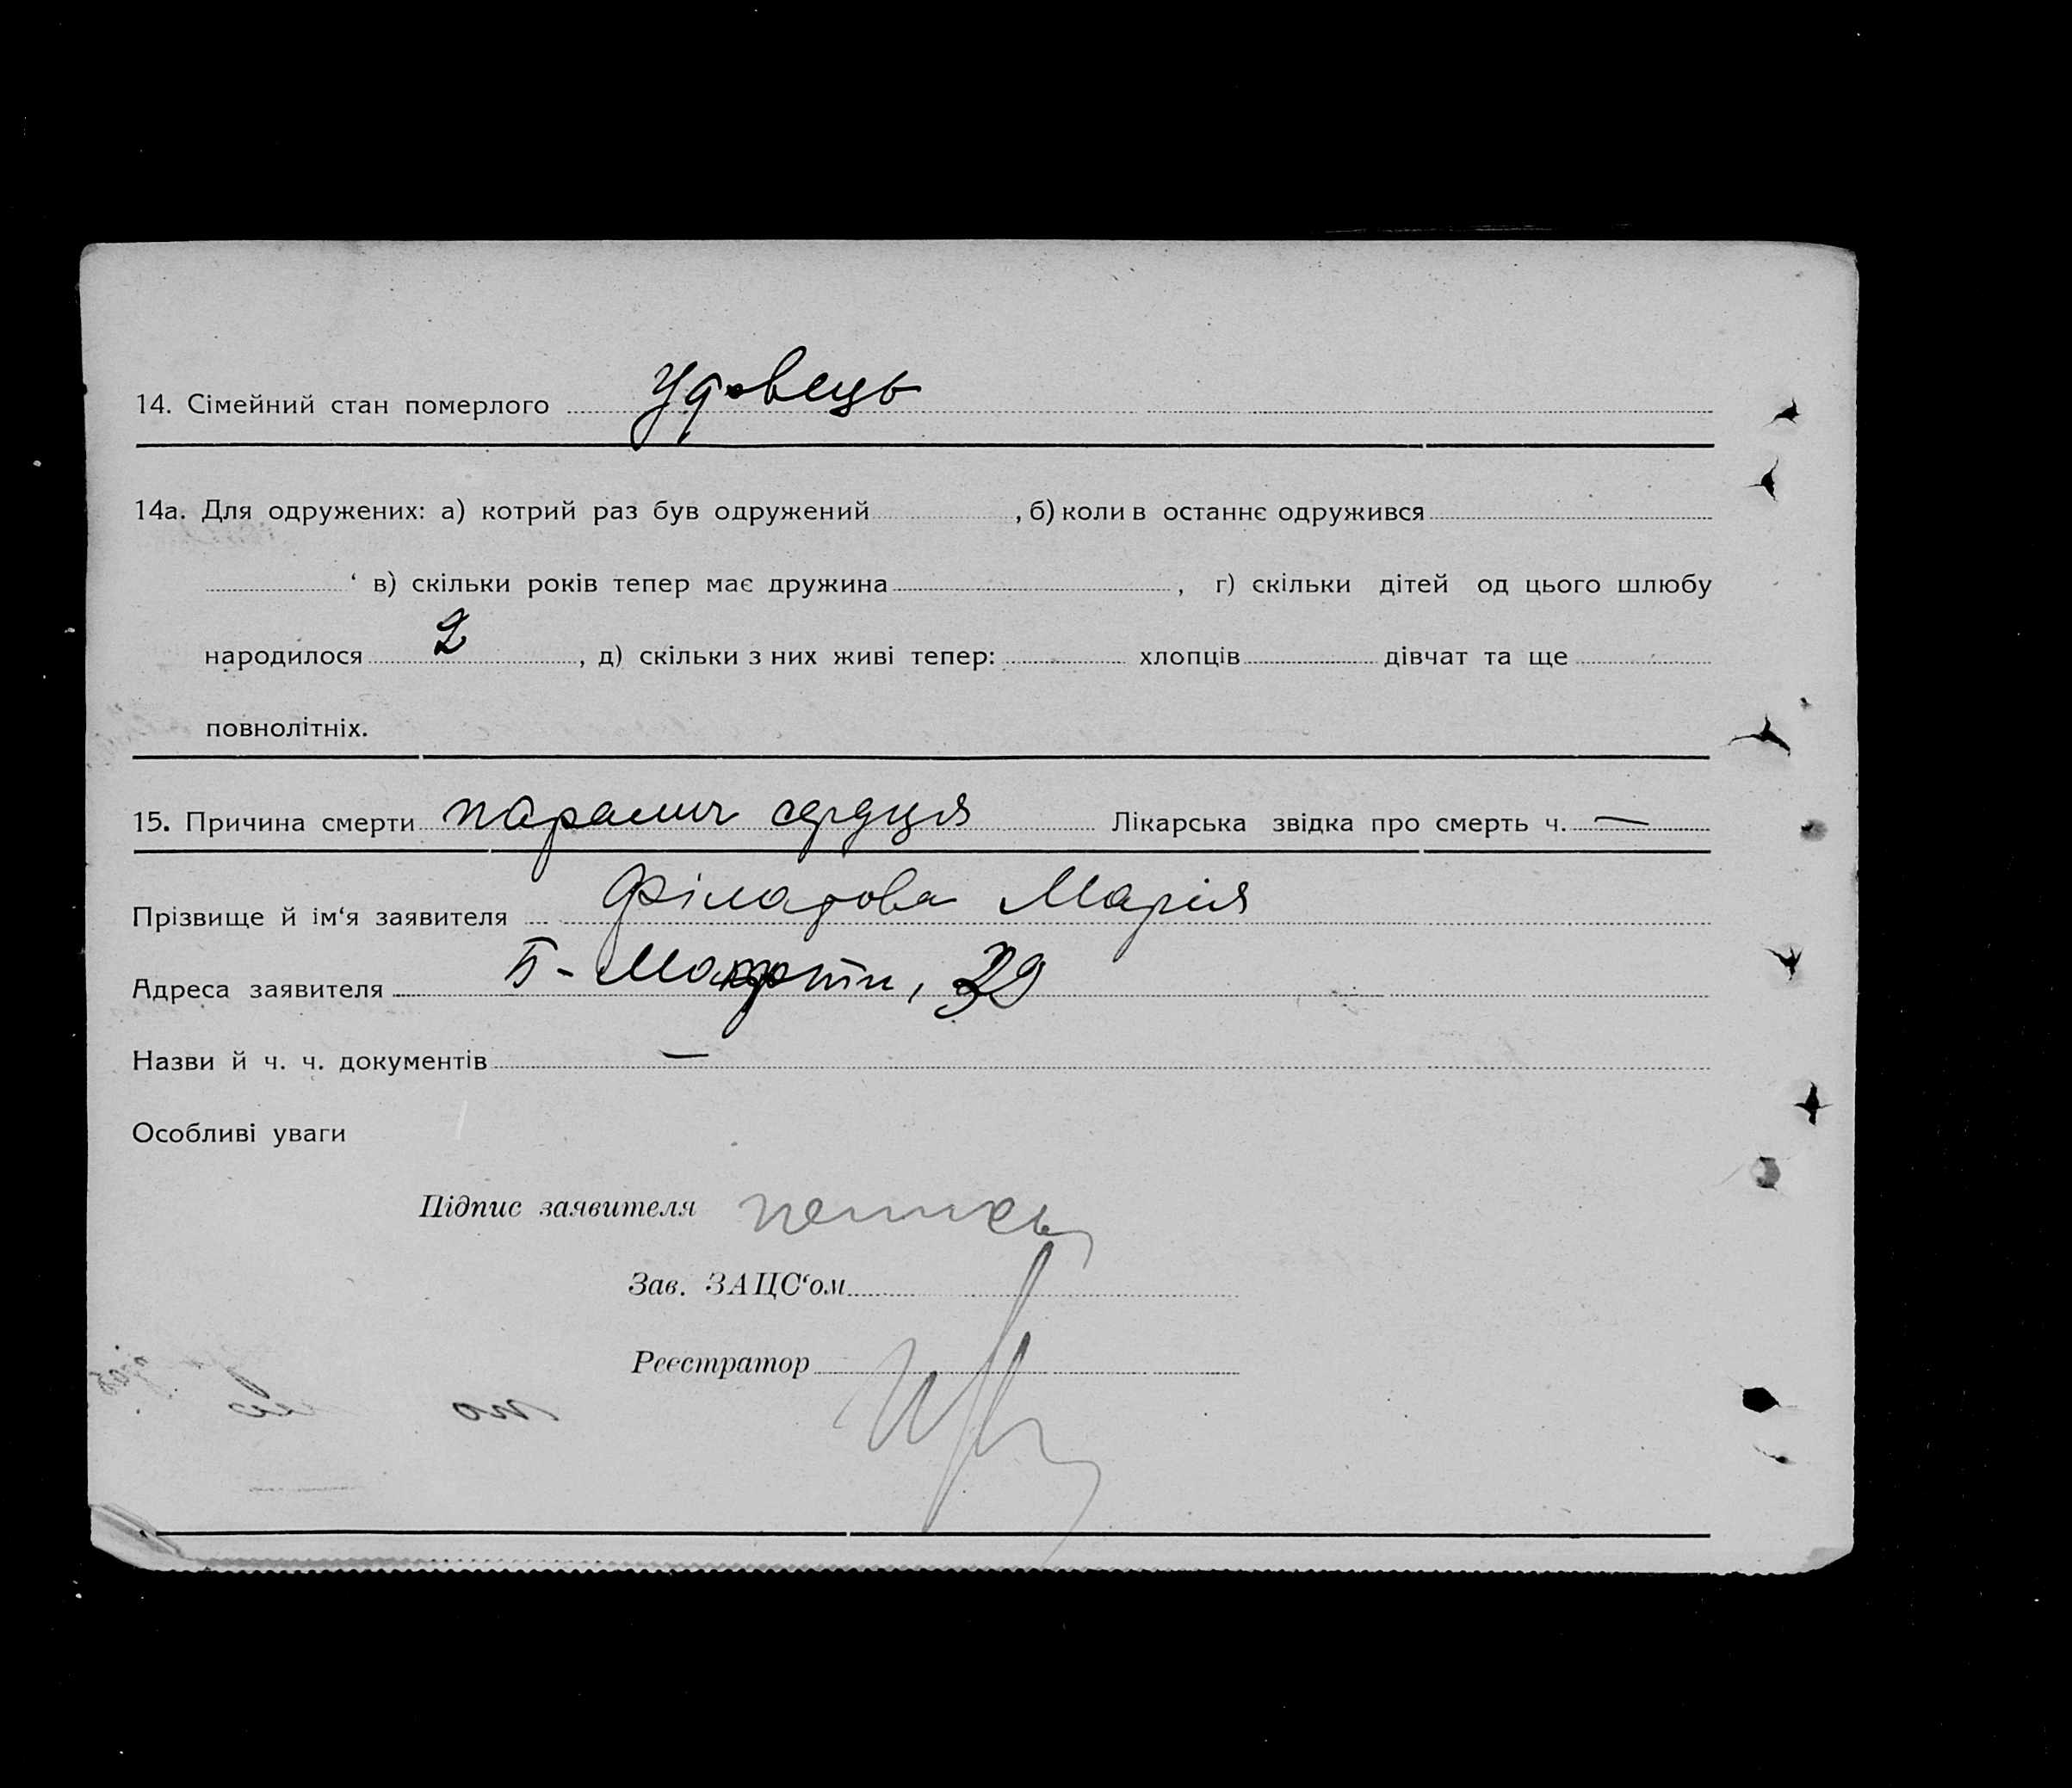 14. Сімейний стан померлого удовець
14а. Для одружених: а) котрий раз був одружений , б) коли в останнє одружився
‘ в) скільки років тепер має дружина , г) скільки дітей од цього шлюбу
народилося 2 , д) скільки з них живі тепер: хлопців дівчат та ще
повнолітніх.
15. Причина смерти параліч сердця Лікарська звідка про смерть ч. —
Прізвище й ім‘я заявителя Філатова Марія
Адреса заявителя Б- , 39
Назви й ч. ч. документів —
Особливі уваги
Підпис заявителя
Зав. ЗАЦС‘ом
Реєстратор